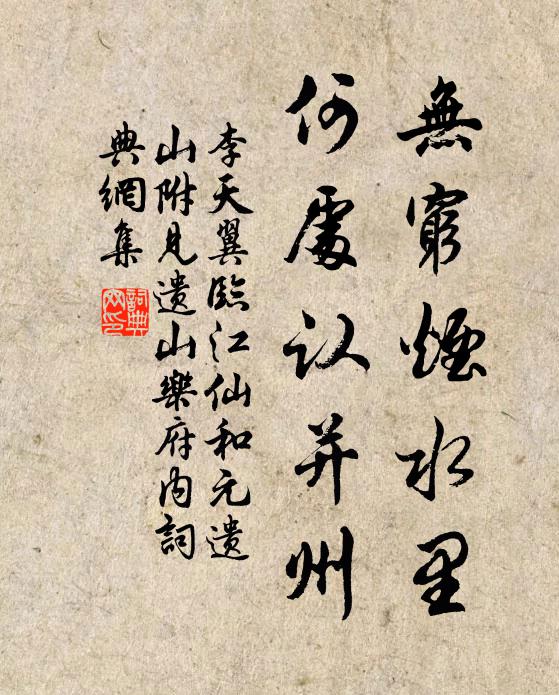 無窮煙水里
何處认并州
李天翼臨江仙和元遗
山附見遗山樂府内詞
典網集
詞典網印